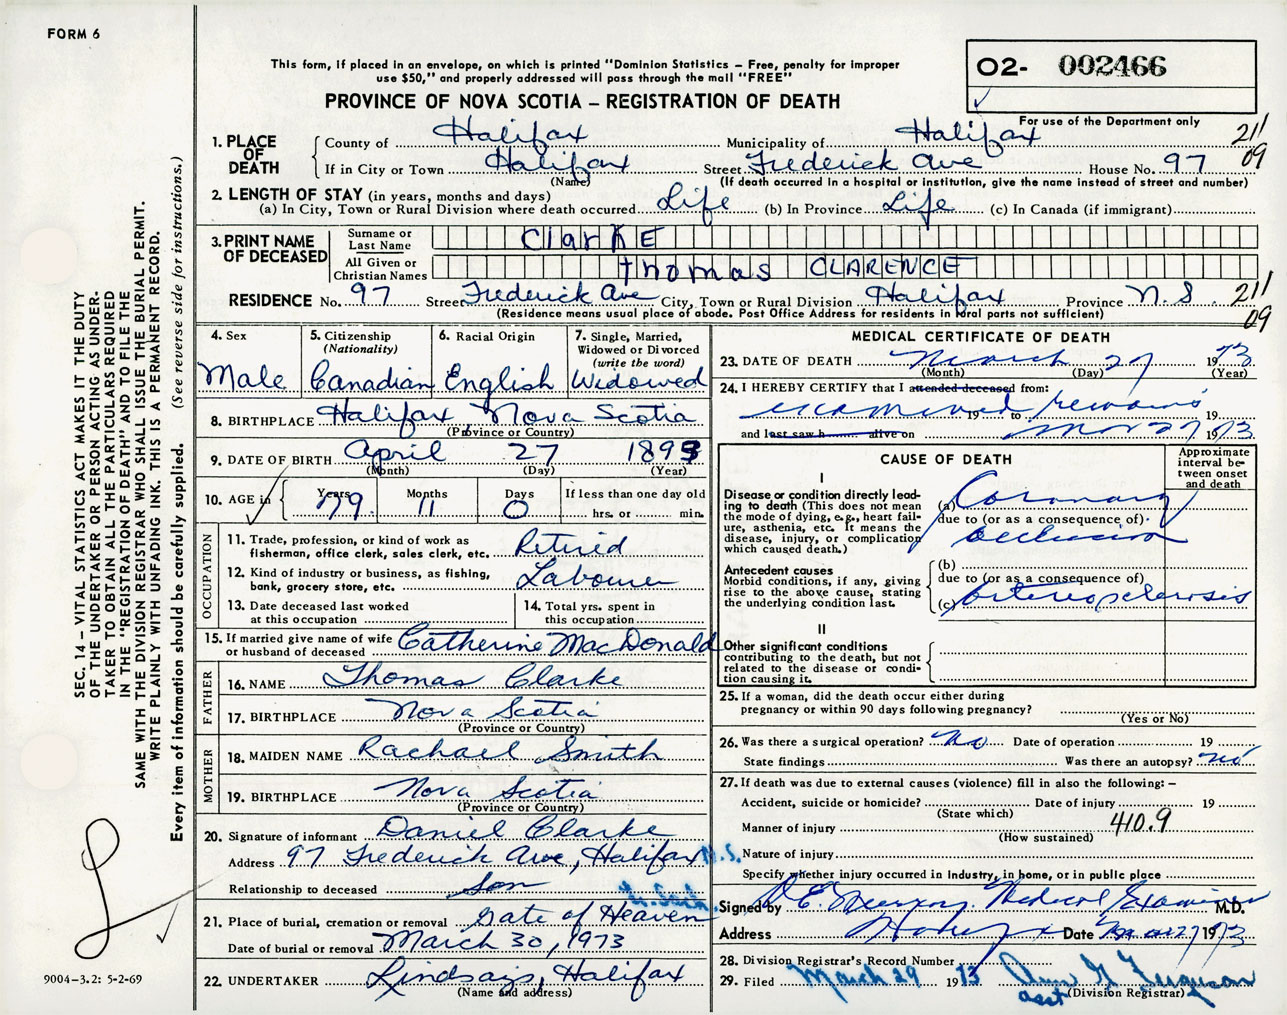 FORM 6
This form, if placed in an envelope, on which is printed "Dominion Statistics – Free, penalty for improper
use $50," and properly addressed will pass through the mail "FREE"
PROVINCE OF NOVA SCOTIA – REGISTRATION OF DEATH
02- 002466
For use of the Department only
211
09
1. PLACE OF DEATH
County of Halifax Municipality of Halifax
If in City or Town Halifax Street Frederick Ave House No. 97
(Name) (If death occurred in a hospital or institution, give the name instead of street and number)
2. LENGTH OF STAY (in years, months and days)
(a) In City, Town or Rural Division where death occurred Life (b) In Province Life (c) In Canada (if immigrant)
3. PRINT NAME OF DECEASED
Surname or Last Name ClarKE
All Given or Christian Names thomas CLARENCE
RESIDENCE No. 97 Street Frederick Ave City, Town or Rural Division Halifax Province N.S. 211
(Residence means usual place of abode. Post Office Address for residents in rural parts not sufficient) 09
4. Sex Male
5. Citizenship (Nationality) Canadian
6. Racial Origin English
7. Single, Married, Widowed or Divorced (write the word) Widowed
8. BIRTHPLACE Halifax Nova Scotia
(Province or Country)
9. DATE OF BIRTH April 27 1893
(Month) (Day) (Year)
10. AGE in Years 79 Months 11 Days 0 If less than one day old hrs. or min.
OCCUPATION
11. Trade, profession, or kind of work as fisherman, office clerk, sales clerk, etc. Retired
12. Kind of industry or business, as fishing, bank, grocery store, etc. Labourer
13. Date deceased last worked at this occupation
14. Total yrs. spent in this occupation
15. If married give name of wife or husband of deceased Catherine MacDonald
FATHER
16. NAME Thomas Clarke
17. BIRTHPLACE Nova Scotia
(Province or Country)
MOTHER
18. MAIDEN NAME Rachael Smith
19. BIRTHPLACE Nova Scotia
(Province or Country)
20. Signature of informant Daniel Clarke
Address 97 Frederick Ave, Halifax N.S.
Relationship to deceased Son
21. Place of burial, cremation or removal Gate of Heaven
Date of burial or removal March 30, 1973
22. UNDERTAKER Lindsays, Halifax
(Name and address)
MEDICAL CERTIFICATE OF DEATH
23. DATE OF DEATH March 27 1973
(Month) (Day) (Year)
24. I HEREBY CERTIFY that I attended deceased from:
examined 19 to remains 19
and last saw h alive on Mar 27 1973
CAUSE OF DEATH
Approximate interval between onset and death
I
Disease or condition directly leading to death (This does not mean the mode of dying, e.g., heart failure, asthenia, etc. It means the disease, injury, or complication which caused death.)
(a) Coronary
due to (or as a consequence of)
occlusion
Antecedent causes
Morbid conditions, if any, giving rise to the above cause, stating the underlying condition last.
(b)
due to (or as a consequence of)
(c) arteriosclerosis
II
Other significant conditions contributing to the death, but not related to the disease or condition causing it.
25. If a woman, did the death occur either during pregnancy or within 90 days following pregnancy?
(Yes or No)
26. Was there a surgical operation? No Date of operation 19
State findings Was there an autopsy? no
27. If death was due to external causes (violence) fill in also the following: –
Accident, suicide or homicide? Date of injury 19
(State which)
Manner of injury 410.9
(How sustained)
Nature of injury
Specify whether injury occurred in Industry, in home, or in public place
Signed by Medical Examiner M.D.
Address Date Mar 27 1973
28. Division Registrar's Record Number
29. Filed March 29 1973 Ann G Ferguson
(Division Registrar)
SEC. 14 – VITAL STATISTICS ACT MAKES IT THE DUTY
OF THE UNDERTAKER OR PERSON ACTING AS UNDER-
TAKER TO OBTAIN ALL THE PARTICULARS REQUIRED
IN THE "REGISTRATION OF DEATH" AND TO FILE THE
SAME WITH THE DIVISION REGISTRAR WHO SHALL ISSUE THE BURIAL PERMIT.
WRITE PLAINLY WITH UNFADING INK. THIS IS A PERMANENT RECORD.
Every item of information should be carefully supplied. (See reverse side for instructions.)
9004-3.2: 5-2-69